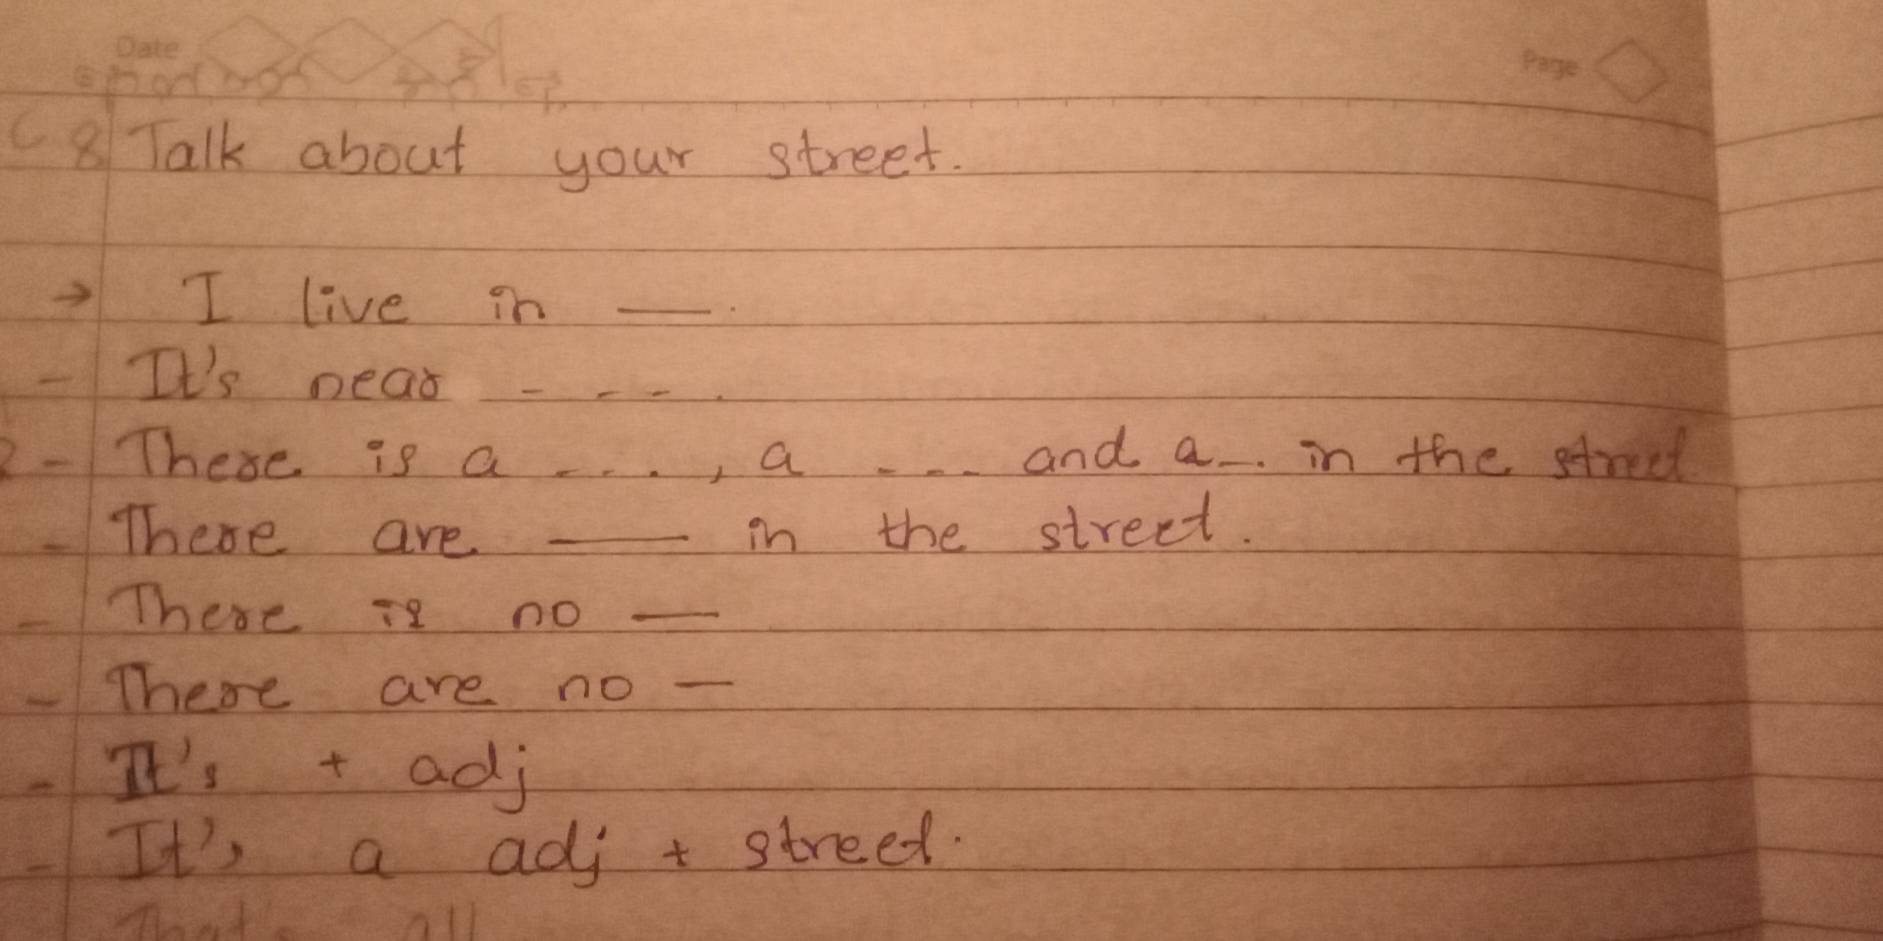 Date
Page
8 Talk about your street.
→ I live in —.
- It's near - - - .
- There is a - - - . , a - - - and a -. in the street
- There are — in the street.
- There is no —
- There are no —
- It's + adj
- It's a adj + street.
That's all